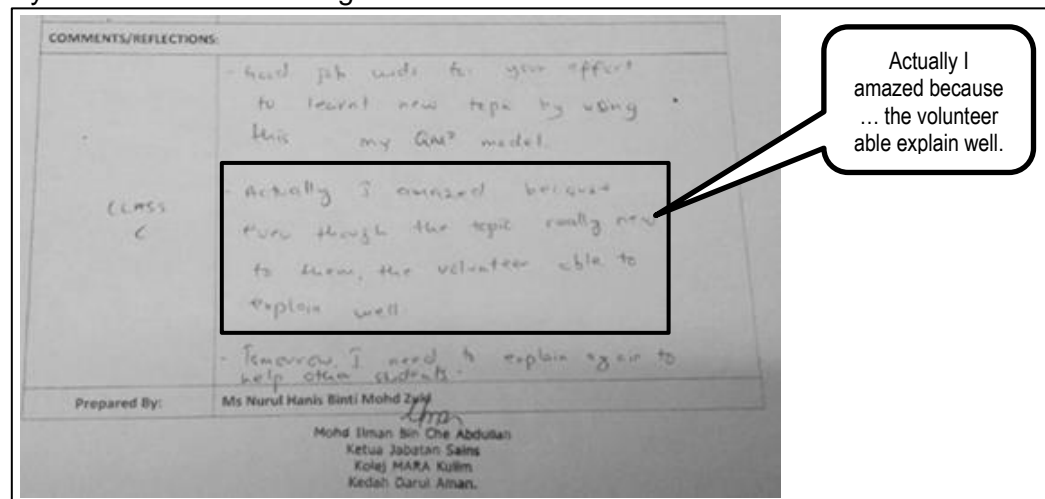 COMMENTS/REFLECTIONS:
- Good job for your effort
to learnt new topic by using
this my QM² model.
CLASS
C
- Actually I amazed because
even though the topic really new
to them, the volunteer able to
explain well.
- Tomorrow I need to explain again to
help other students.
Prepared By:
Ms Nurul Hanis Binti Mohd Zyid
Mohd Ilman Bin Che Abdullah
Ketua Jabatan Sains
Kolej MARA Kulim
Kedah Darul Aman.
Actually I
amazed because
… the volunteer
able explain well.